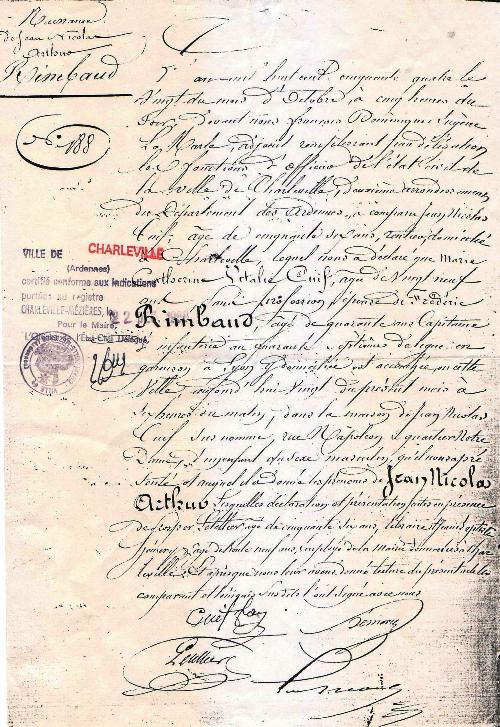 Naissance
de Jean Nicolas
Arthur
Rimbaud
N° 188
L'an mil huit cent cinquante quatre le
Vingt du mois d'Octobre, à cinq heures du
Soir, Devant nous François Dominique Eugène
adjoint remplissant par délégation
les fonctions d'officier de l'état civil de
la Ville de Charleville, deuxième arrondissement
du Département des Ardennes, a comparu Jean Nicolas
Cuif, âgé de cinquante six ans, rentier, domicilié
à Charleville, lequel nous a déclaré que Marie
Catherine Vitalie Cuif, âgée de vingt neuf
ans profession, épouse de Frédéric
Rimbaud, âgé de quarante ans Capitaine
d'infanterie au quarante septième de ligne en
garnison à Lyon y domicilié est accouchée en cette
Ville, aujourd'hui Vingt du présent mois à
Six heures du matin, dans la maison de Jean Nicolas
Cuif susnommé, rue Napoléon quartier Notre
Dame, d'un enfant du sexe masculin, qu'il nous a pré
senté et auquel il a donné les prénoms de Jean Nicolas
Arthur Lesquelles déclaration et présentation faites en présence
de Prosper Letellier âgé de cinquante six ans, libraire et
âgé de trente neuf ans, employé de la Mairie domiciliés à Char
leville. Et après que nous leur avons donné lecture du présent acte le
comparant et témoins susdits l'ont signé avec nous
Cuif
VILLE DE CHARLEVILLE
(Ardennes)
certifié conforme aux indications
portées au registre
CHARLEVILLE-MÉZIÈRES, le
Pour le Maire,
L'Officier de l'État Civil Délégué,